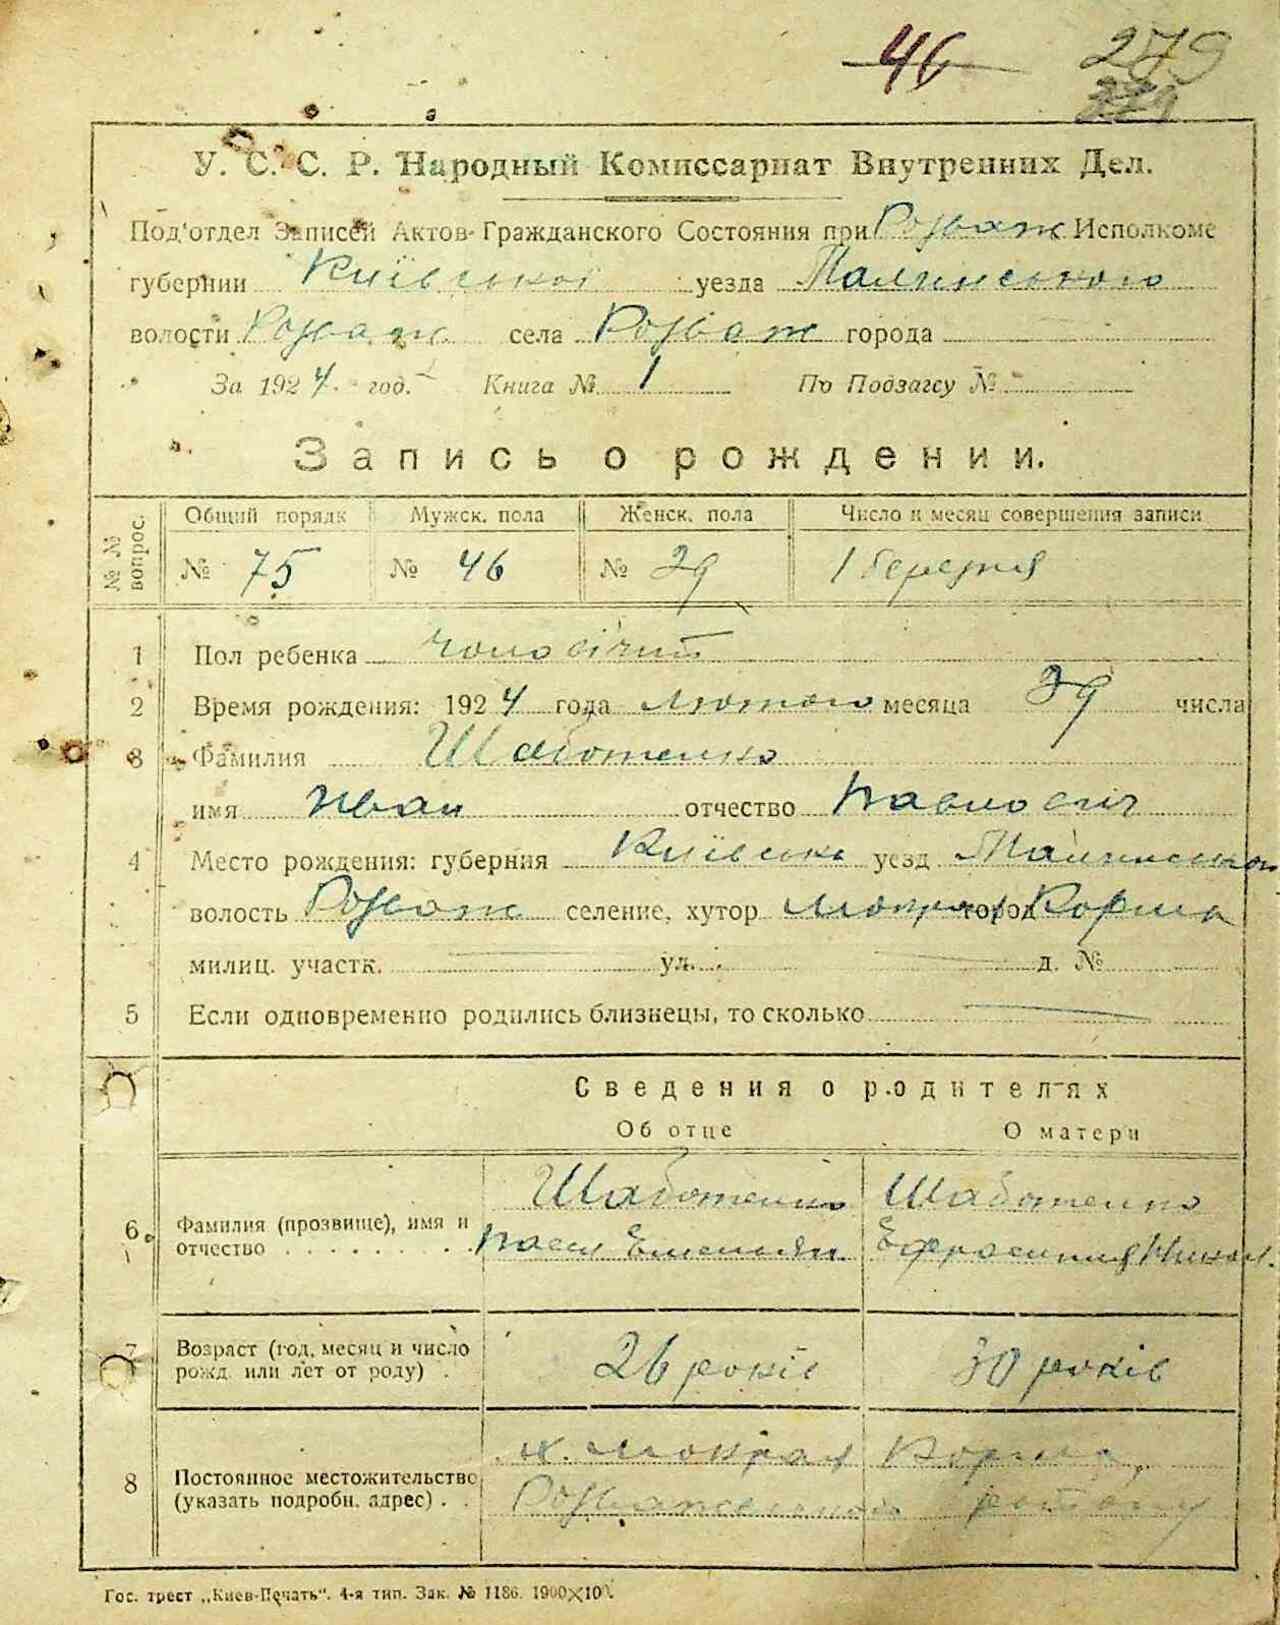 46 279
У. С. С. Р. Народный Комиссариат Внутренних Дел.
Под'отдел Записей Актов Гражданского Состояния при Розваж Исполкоме
губернии Київської уезда Малинського
волости Розваж села Розваж города
За 1924 год. Книга № 1 По Подзагсу №
Запись о рождении.
№ № вопрос. Общий порядк Мужск. пола Женск. пола Число и месяц совершения записи
№ 75 № 46 № 29 1 березня
1 Пол ребенка чоловічий
2 Время рождения: 1924 года лютого месяца 29 числа
3 Фамилия Шаботенко
имя Иван отчество Павлович
4 Место рождения: губерния Київська уезд Малинський
волость Розваж селение, хутор Мокрая город Корма
милиц. участк. ул. д. №
5 Если одновременно родились близнецы, то сколько
Сведения о родителях
Об отце О матери
6 Фамилия (прозвище), имя и отчество Шаботенко Шаботенко
Емельян Ефросиния Никол.
7 Возраст (год, месяц и число рожд или лет от роду) 26 років 30 років
8 Постоянное местожительство (указать подробн. адрес) х. Мокрая Корма,
Розважевського району
Гос. трест „Киев-Печать“. 4-я тип. Зак. № 1186. 1900×100.